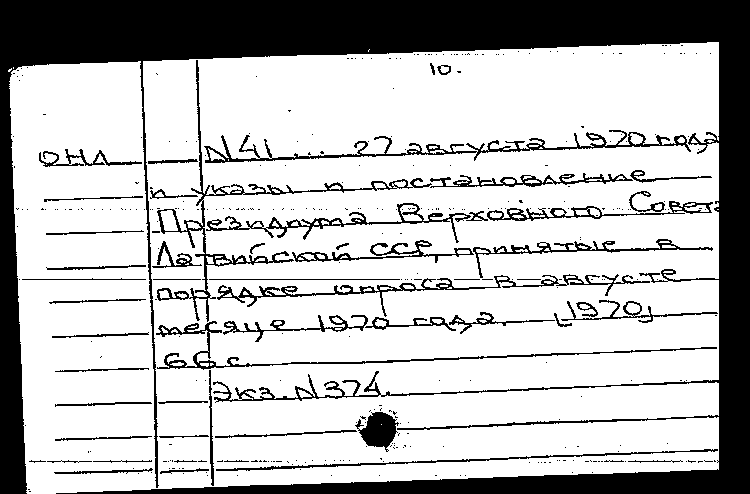 10.
ОНЛ N41 ... 27 августа 1970 года
и указы и постановление
Президиума Верховного Совета
Латвийской ССР, принятые в
порядке опроса в августе
месяце 1970 года. [1970]
66 с.
Экз. N374.